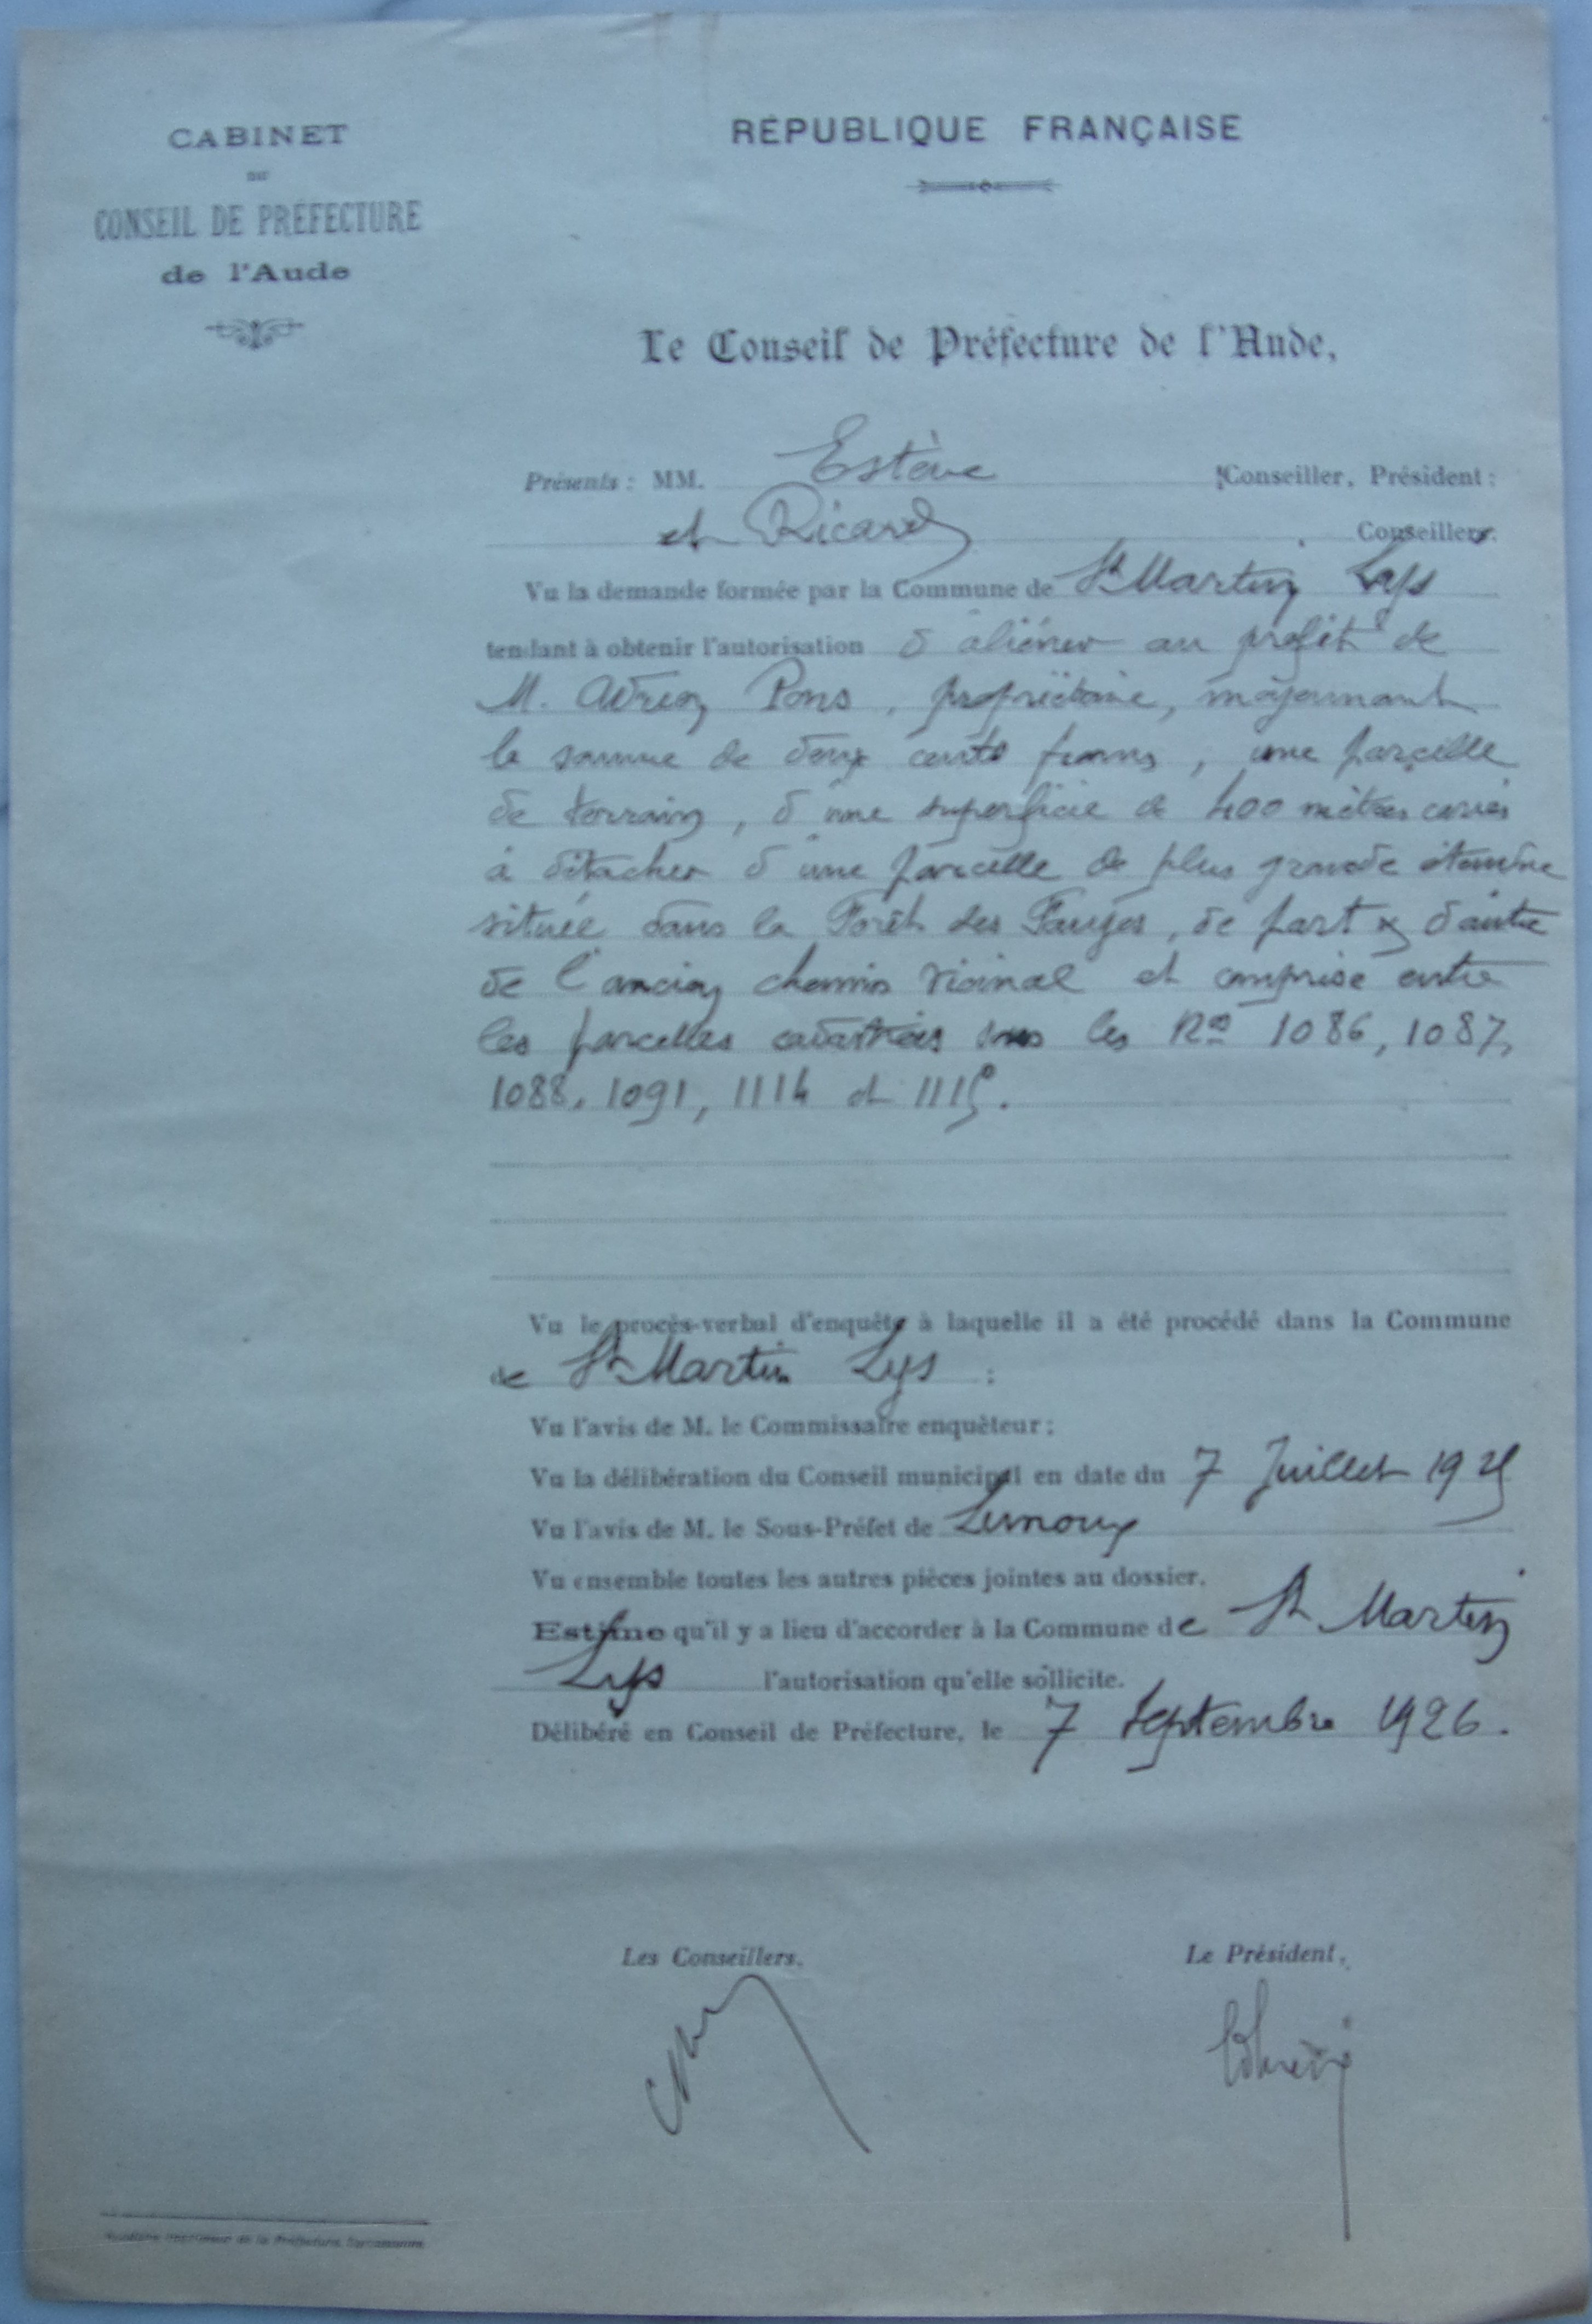 CABINET
DU
CONSEIL DE PRÉFECTURE
de l'Aude
RÉPUBLIQUE FRANÇAISE
Le Conseil de Préfecture de l'Aude,
Présents : MM. Estève Conseiller, Président :
et Ricard Conseiller.
Vu la demande formée par la Commune de St Martin Lys
tendant à obtenir l'autorisation d'aliéner au profit de
M. Adrien Pons, propriétaire, moyennant
la somme de deux cents francs, une parcelle
de terrain, d'une superficie de 400 mètres carrés
à détacher d'une parcelle de plus grande étendue
située dans la Forêt des Fanges, de part & d'autre
de l'ancien chemin vicinal et comprise entre
les parcelles cadastrées sous les Nos 1086, 1087,
1088, 1091, 1114 et 1115.
Vu le procès-verbal d'enquête à laquelle il a été procédé dans la Commune
de St Martin Lys :
Vu l'avis de M. le Commissaire enquêteur :
Vu la délibération du Conseil municipal en date du 7 Juillet 1925
Vu l'avis de M. le Sous-Préfet de Limoux
Vu ensemble toutes les autres pièces jointes au dossier.
Estime qu'il y a lieu d'accorder à la Commune de St Martin
Lys l'autorisation qu'elle sollicite.
Délibéré en Conseil de Préfecture, le 7 Septembre 1926.
Les Conseillers,
Le Président,
de la Préfecture, Carcassonne